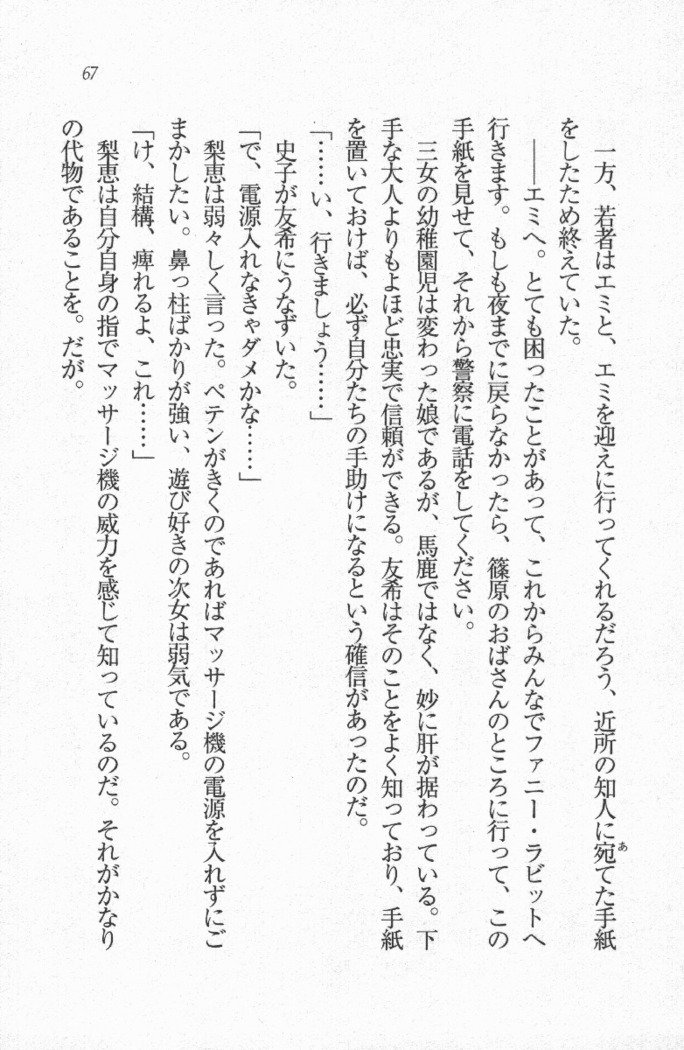 67
一方、若者はエミと、エミを迎えに行ってくれるだろう、近所の知人に宛てた手紙
あ
をしたため終えていた。
――エミへ。とても困ったことがあって、これからみんなでファニー・ラビットへ
行きます。もしも夜までに戻らなかったら、篠原のおばさんのところに行って、この
手紙を見せて、それから警察に電話をしてください。
三女の幼稚園児は変わった娘であるが、馬鹿ではなく、妙に肝が据わっている。下
手な大人よりもよほど忠実で信頼ができる。友希はそのことをよく知っており、手紙
を置いておけば、必ず自分たちの手助けになるという確信があったのだ。
「……い、行きましょう……」
史子が友希にうなずいた。
「で、電源入れなきゃダメかな……」
梨恵は弱々しく言った。ペテンがきくのであればマッサージ機の電源を入れずにご
まかしたい。鼻っ柱ばかりが強い、遊び好きの次女は弱気である。
「け、結構、痺れるよ、これ……」
梨恵は自分自身の指でマッサージ機の威力を感じて知っているのだ。それがかなり
の代物であることを。だが。